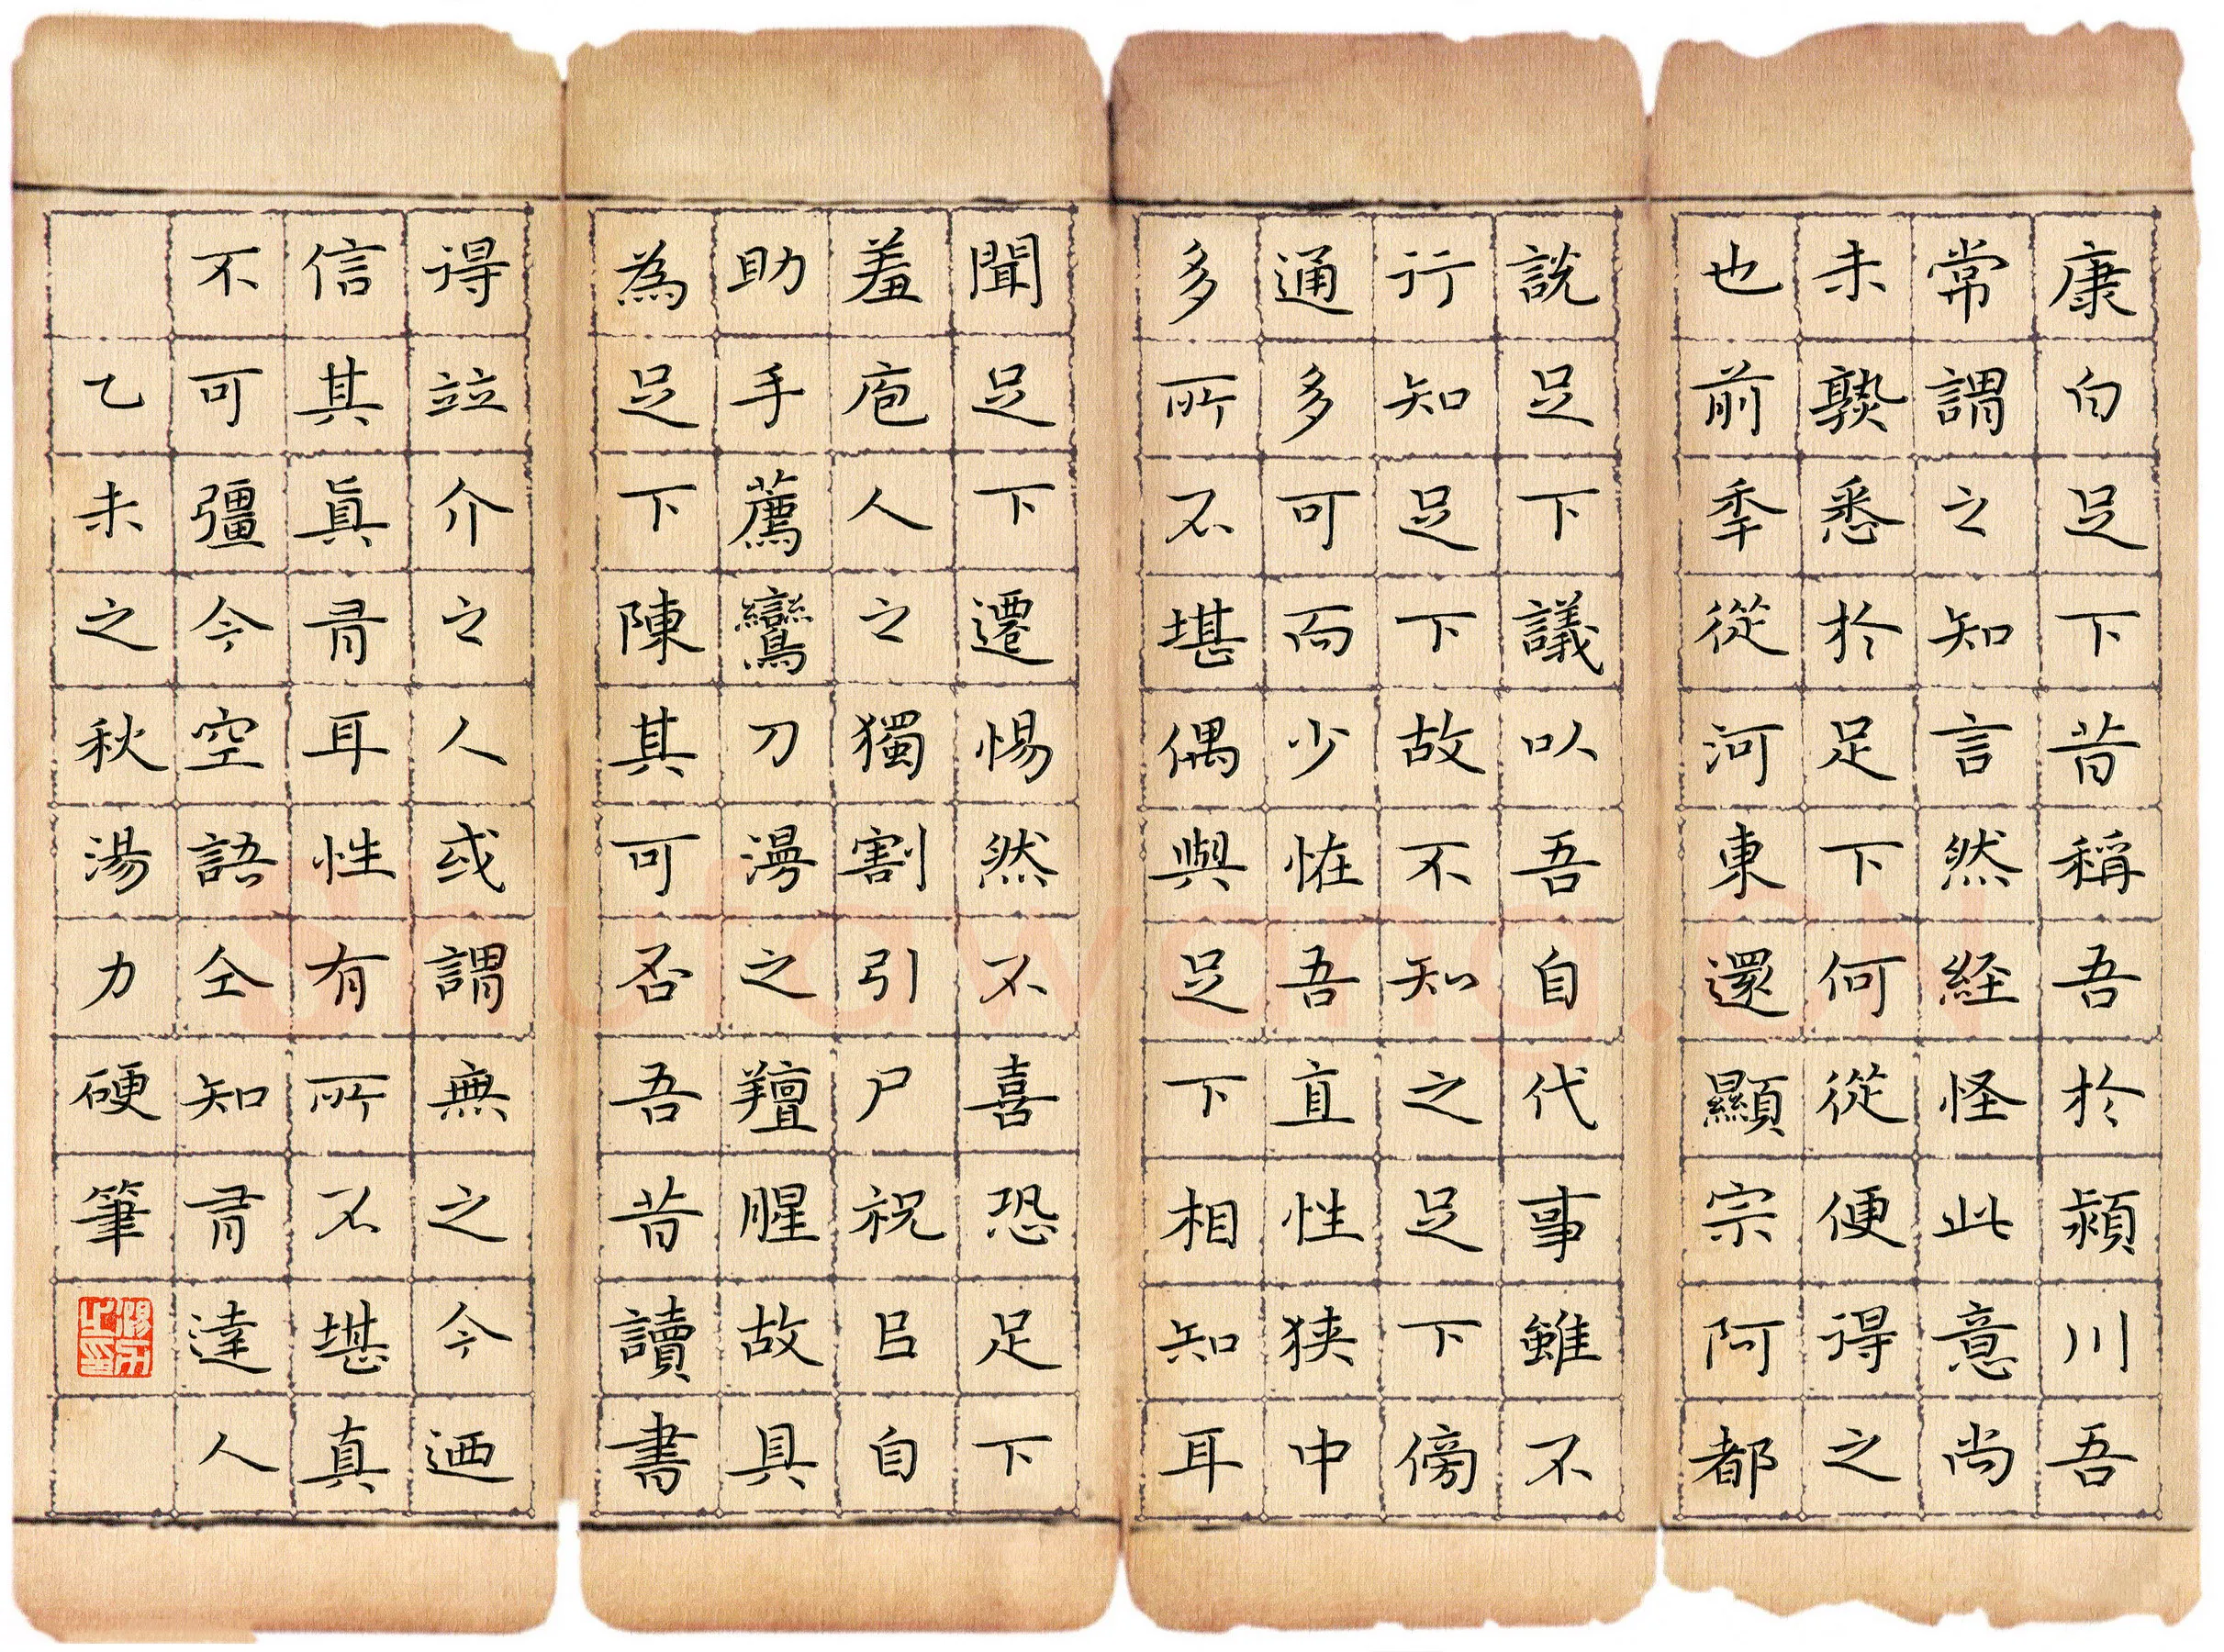 康白足下昔稱吾於潁川吾
常謂之知言然経怪此意尚
未熟悉於足下何從便得之
也前秊從河東還顯宗阿都
說足下議以吾自代事雖不
行知足下故不知之足下傍
通多可而少恠吾直性狹中
多所不堪偶與足下相知耳
聞足下遷惕然不喜恐足下
羞庖人之獨割引尸祝㠯自
助手薦鸞刀漫之羶腥故具
為足下陳其可否吾昔讀書
得竝介之人或謂無之今迺
信其真有耳性有所不堪真
不可彊今空語仝知有達人
乙未之秋湯力硬筆
Shufawang.CN